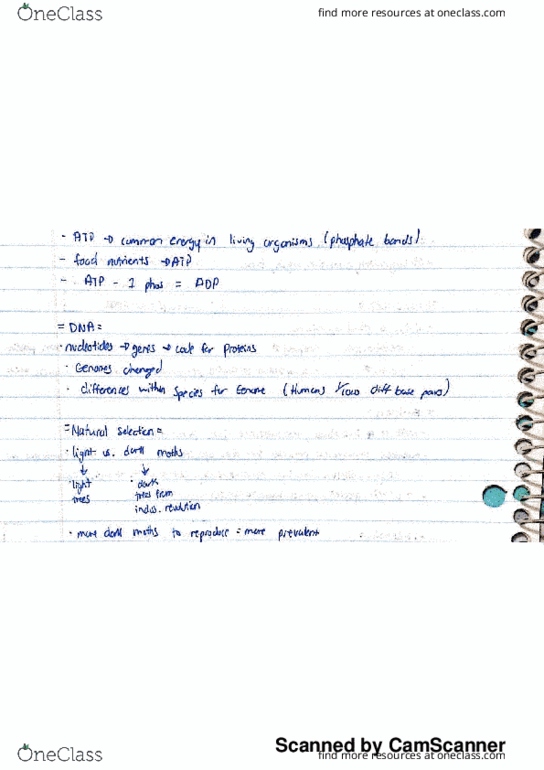 OneClass
find more resources at oneclass.com
- ATP → common energy in living organisms (phosphate bonds)
- food nutrients → ATP
- ATP - 1 phos = ADP
= DNA =
· nucleotides → genes → code for proteins
· Genomes changed
· differences within species for Genome (Humans 1/1000 diff base pairs)
= Natural selection =
· light vs. dark moths
↓ ↓
light dark
trees trees from
indus. revolution
· more dark moths to reproduce = more prevalent
Scanned by CamScanner
OneClass
find more resources at oneclass.com